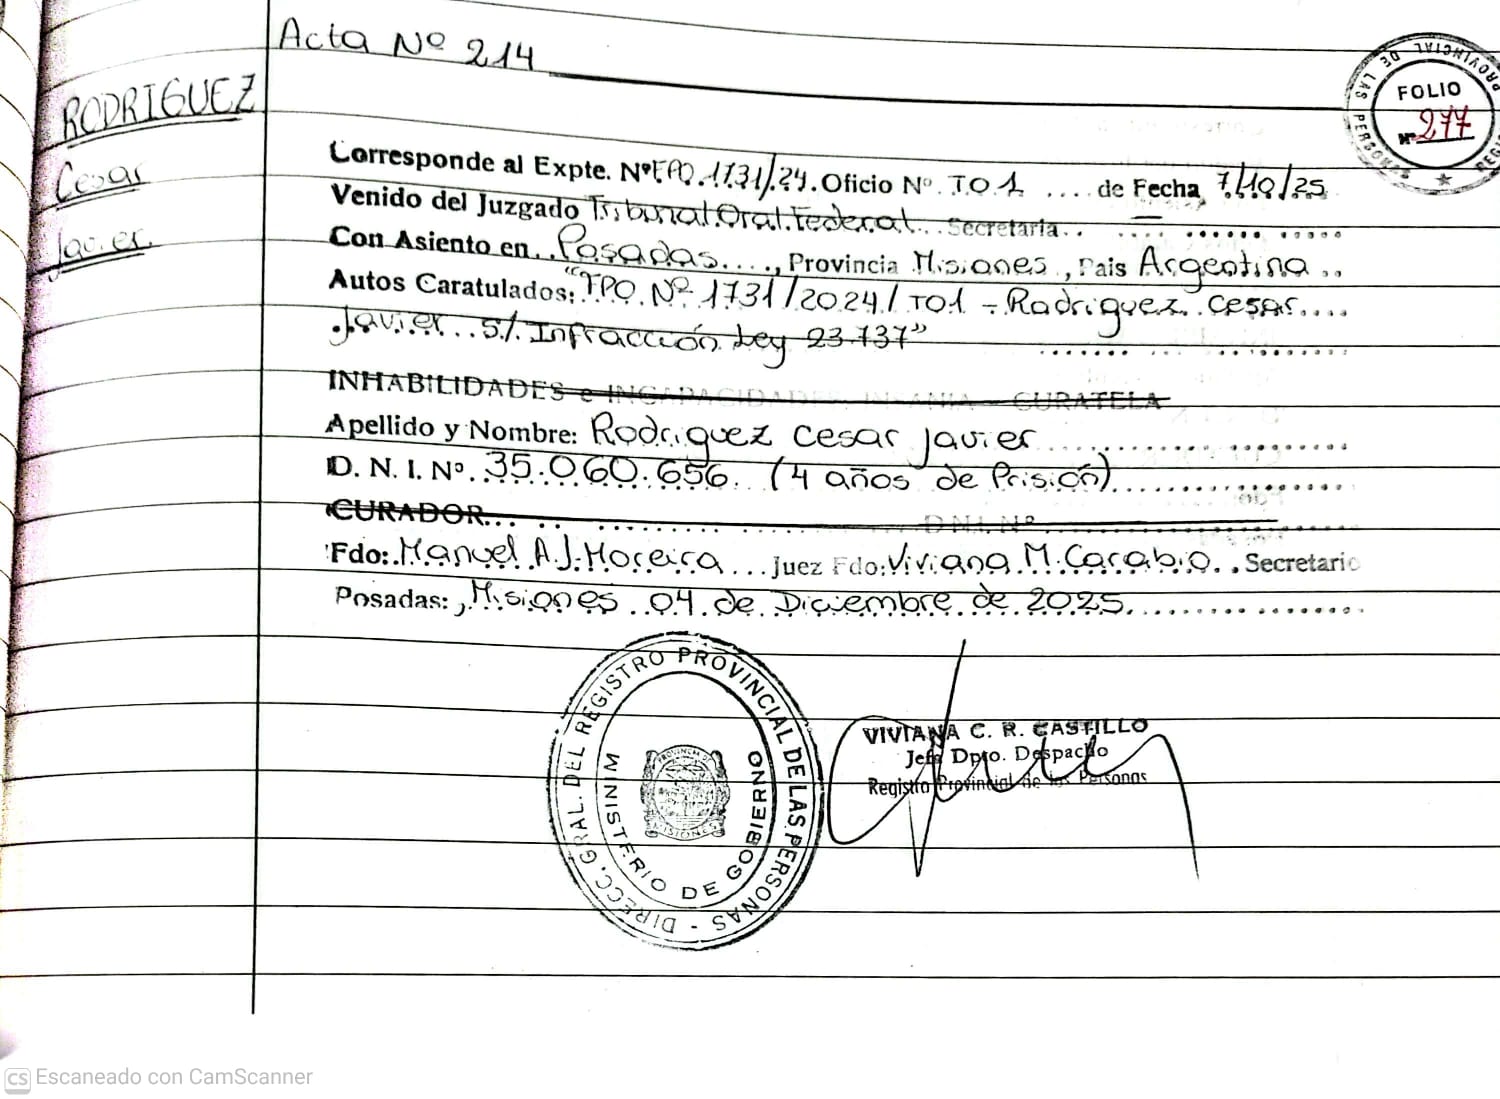 Acta Nº 214
FOLIO
Nº 277
RODRIGUEZ
Cesar
Javier.
Corresponde al Expte. Nº FPO.1731/24. Oficio Nº. TO1 .... de Fecha 7/10/25
Venido del Juzgado Tribunal Oral Federal.. Secretaria.. — .... ...... .....
Con Asiento en.. Posadas...., Provincia Misiones, Pais Argentina..
Autos Caratulados: "FPO. Nº 1731/2024/TO1 - Rodriguez Cesar....
Javier... S/. Infracción Ley 23.737"
INHABILIDADES e INCAPACIDADES, INSANIA - CURATELA
Apellido y Nombre: Rodriguez Cesar Javier
D. N. I. Nº. 35.060.656. (4 años de Prisión)
CURADOR... D.N.I. Nº
Fdo: Manuel A.J. Moreira... Juez Fdo: Viviana M. Carabio.. Secretario
Posadas:, Misiones. 04. de Diciembre de 2025.
DIRECC. GRAL. DEL REGISTRO PROVINCIAL DE LAS PERSONAS -
MINISTERIO DE GOBIERNO
PROVINCIA DE
MISIONES
VIVIANA C. R. CASTILLO
Jefa Dpto. Despacho
Registro Provincial de las Personas
CS Escaneado con CamScanner